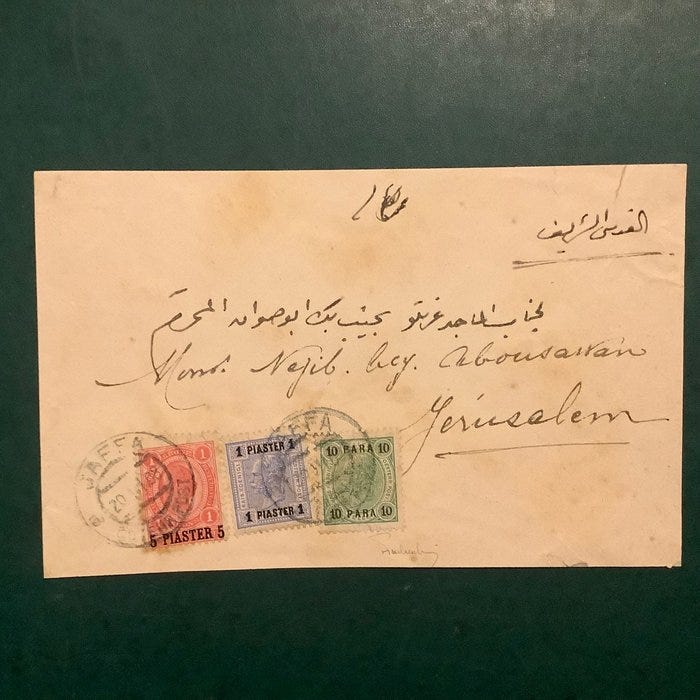 القدس الشريف
لجناب الماجد عزتلو نجيب بك ابو صوان المحترم
Monsr. Nejib. bey. Abousawan
Jérusalem
JAFFA
JAFFA
1 1
5 PIASTER 5
1 PIASTER 1
1 PIASTER 1
10 PARA 10
10 PARA 10